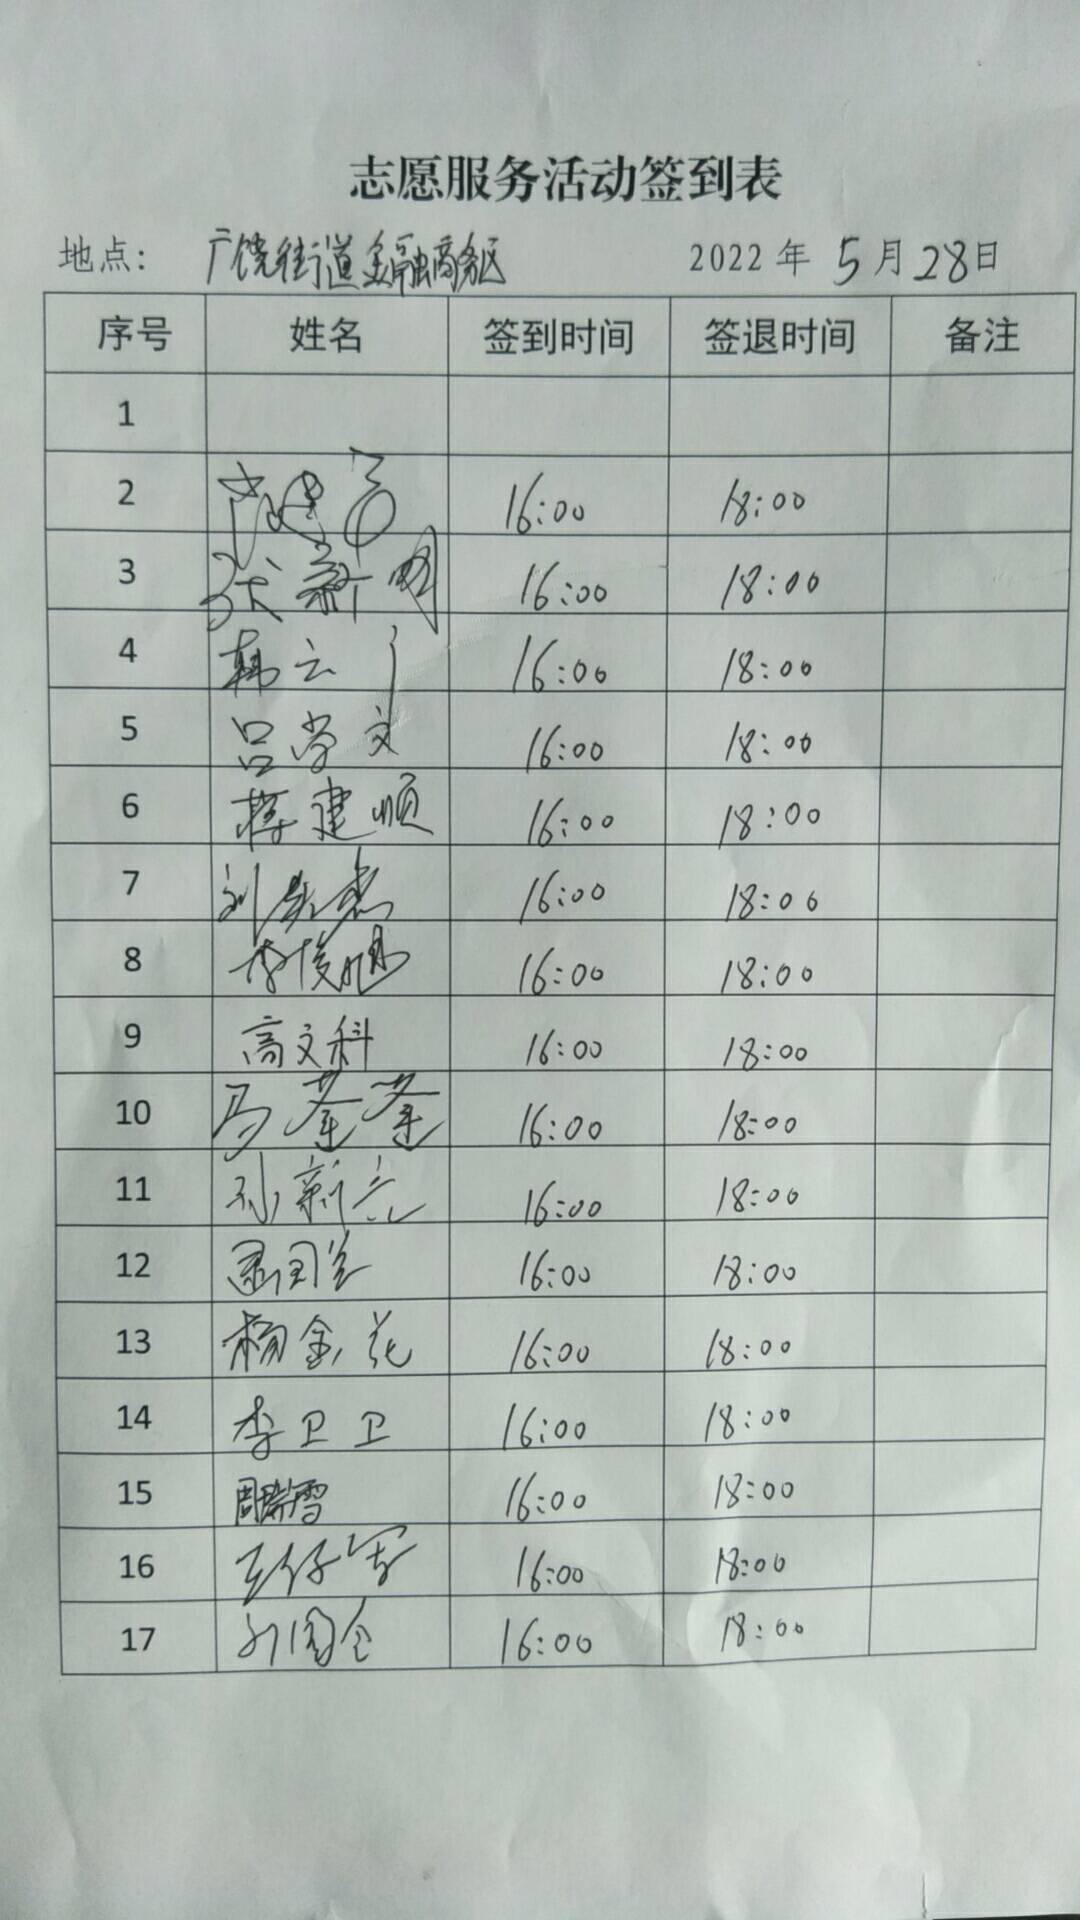 志愿服务活动签到表
地点: 广饶街道金融商务区 2022年5月28日
序号 姓名 签到时间 签退时间 备注
1
2 16:00 18:00
3 张新明 16:00 18:00
4 韩云 16:00 18:00
5 吕学文 16:00 18:00
6 建顺 16:00 18:00
7 刘 16:00 18:00
8 李俊 16:00 18:00
9 高文科 16:00 18:00
10 马荃荃 16:00 18:00
11 孙新亮 16:00 18:00
12 16:00 18:00
13 杨金花 16:00 18:00
14 李卫卫 16:00 18:00
15 周瑞雪 16:00 18:00
16 王 16:00 18:00
17 16:00 18:00